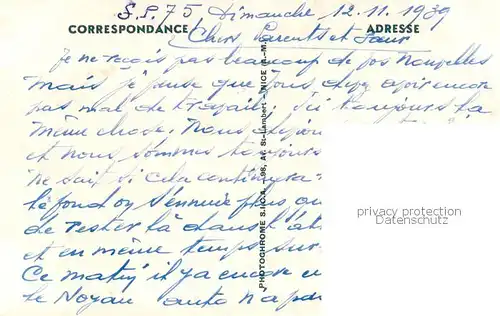 S.P. 75 Dimanche 12.11.1939
CORRESPONDANCE ADRESSE
Chers Parents et Sœur
Je ne reçois pas beaucoup de vos nouvelles
mais je pense que vous devez avoir encore
pas mal de travail. Ici toujours la
même chose. Nous
et nous sommes toujours
ne sait si cela continuera
le fond on s'ennuie plus
de rester là dans l'
et en même temps sur
Ce matin il y a encore
le Noyau auto n'a pas
PHOTOCHROME S.I.C.A. - 98, Av. St-Lambert - NICE (A.-M.)
privacy protecting
Datenschutz